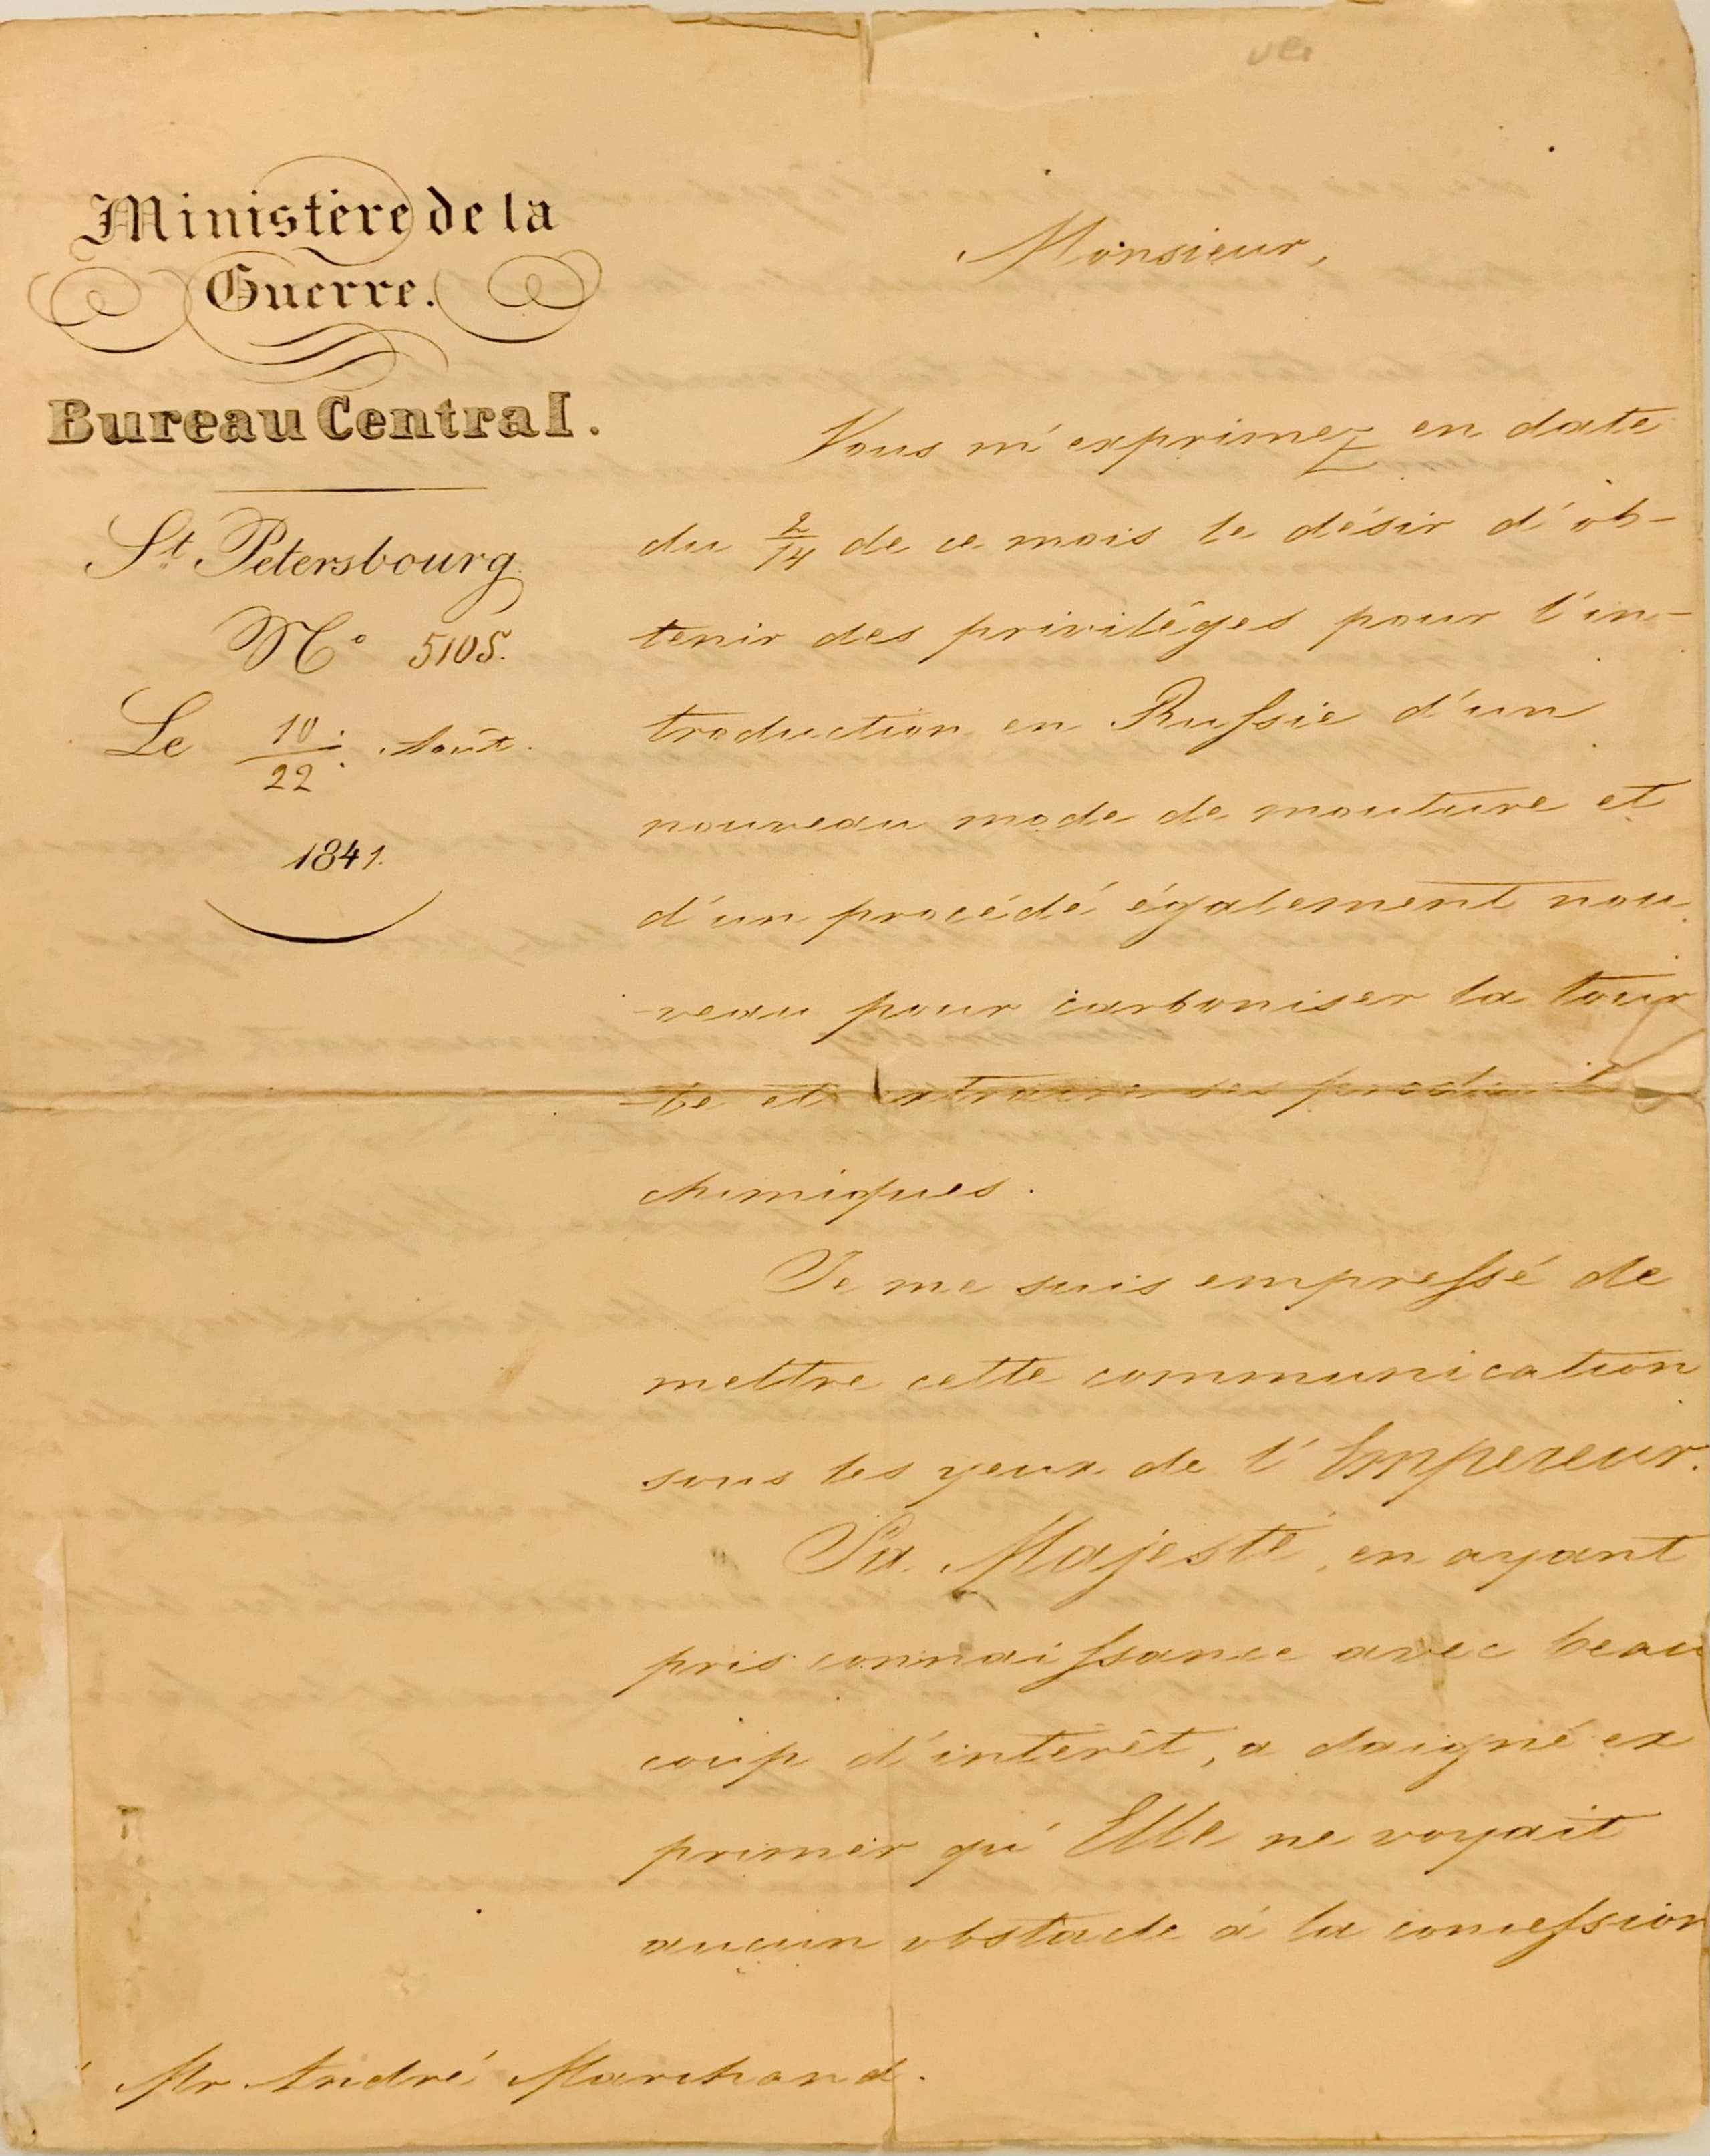 Ministère de la
Guerre.
Bureau Central.
St Petersbourg
No 5105.
Le 10/22 Août.
1841.
Monsieur,
Vous m'exprimez en date
du 2/14 de ce mois le désir d'ob-
tenir des privilèges pour l'in-
troduction en Russie d'un
nouveau mode de mouture et
d'un procédé également nou
-veau pour carboniser la tour
-be et extraire ses produits
chimiques.
Je me suis empressé de
mettre cette communication
sous les yeux de l'Empereur.
Sa Majesté, en ayant
pris connaissance avec beau
coup d'intérêt, a daigné ex
primer qu'Elle ne voyait
aucun obstacle à la concession
Mr André Marchand.